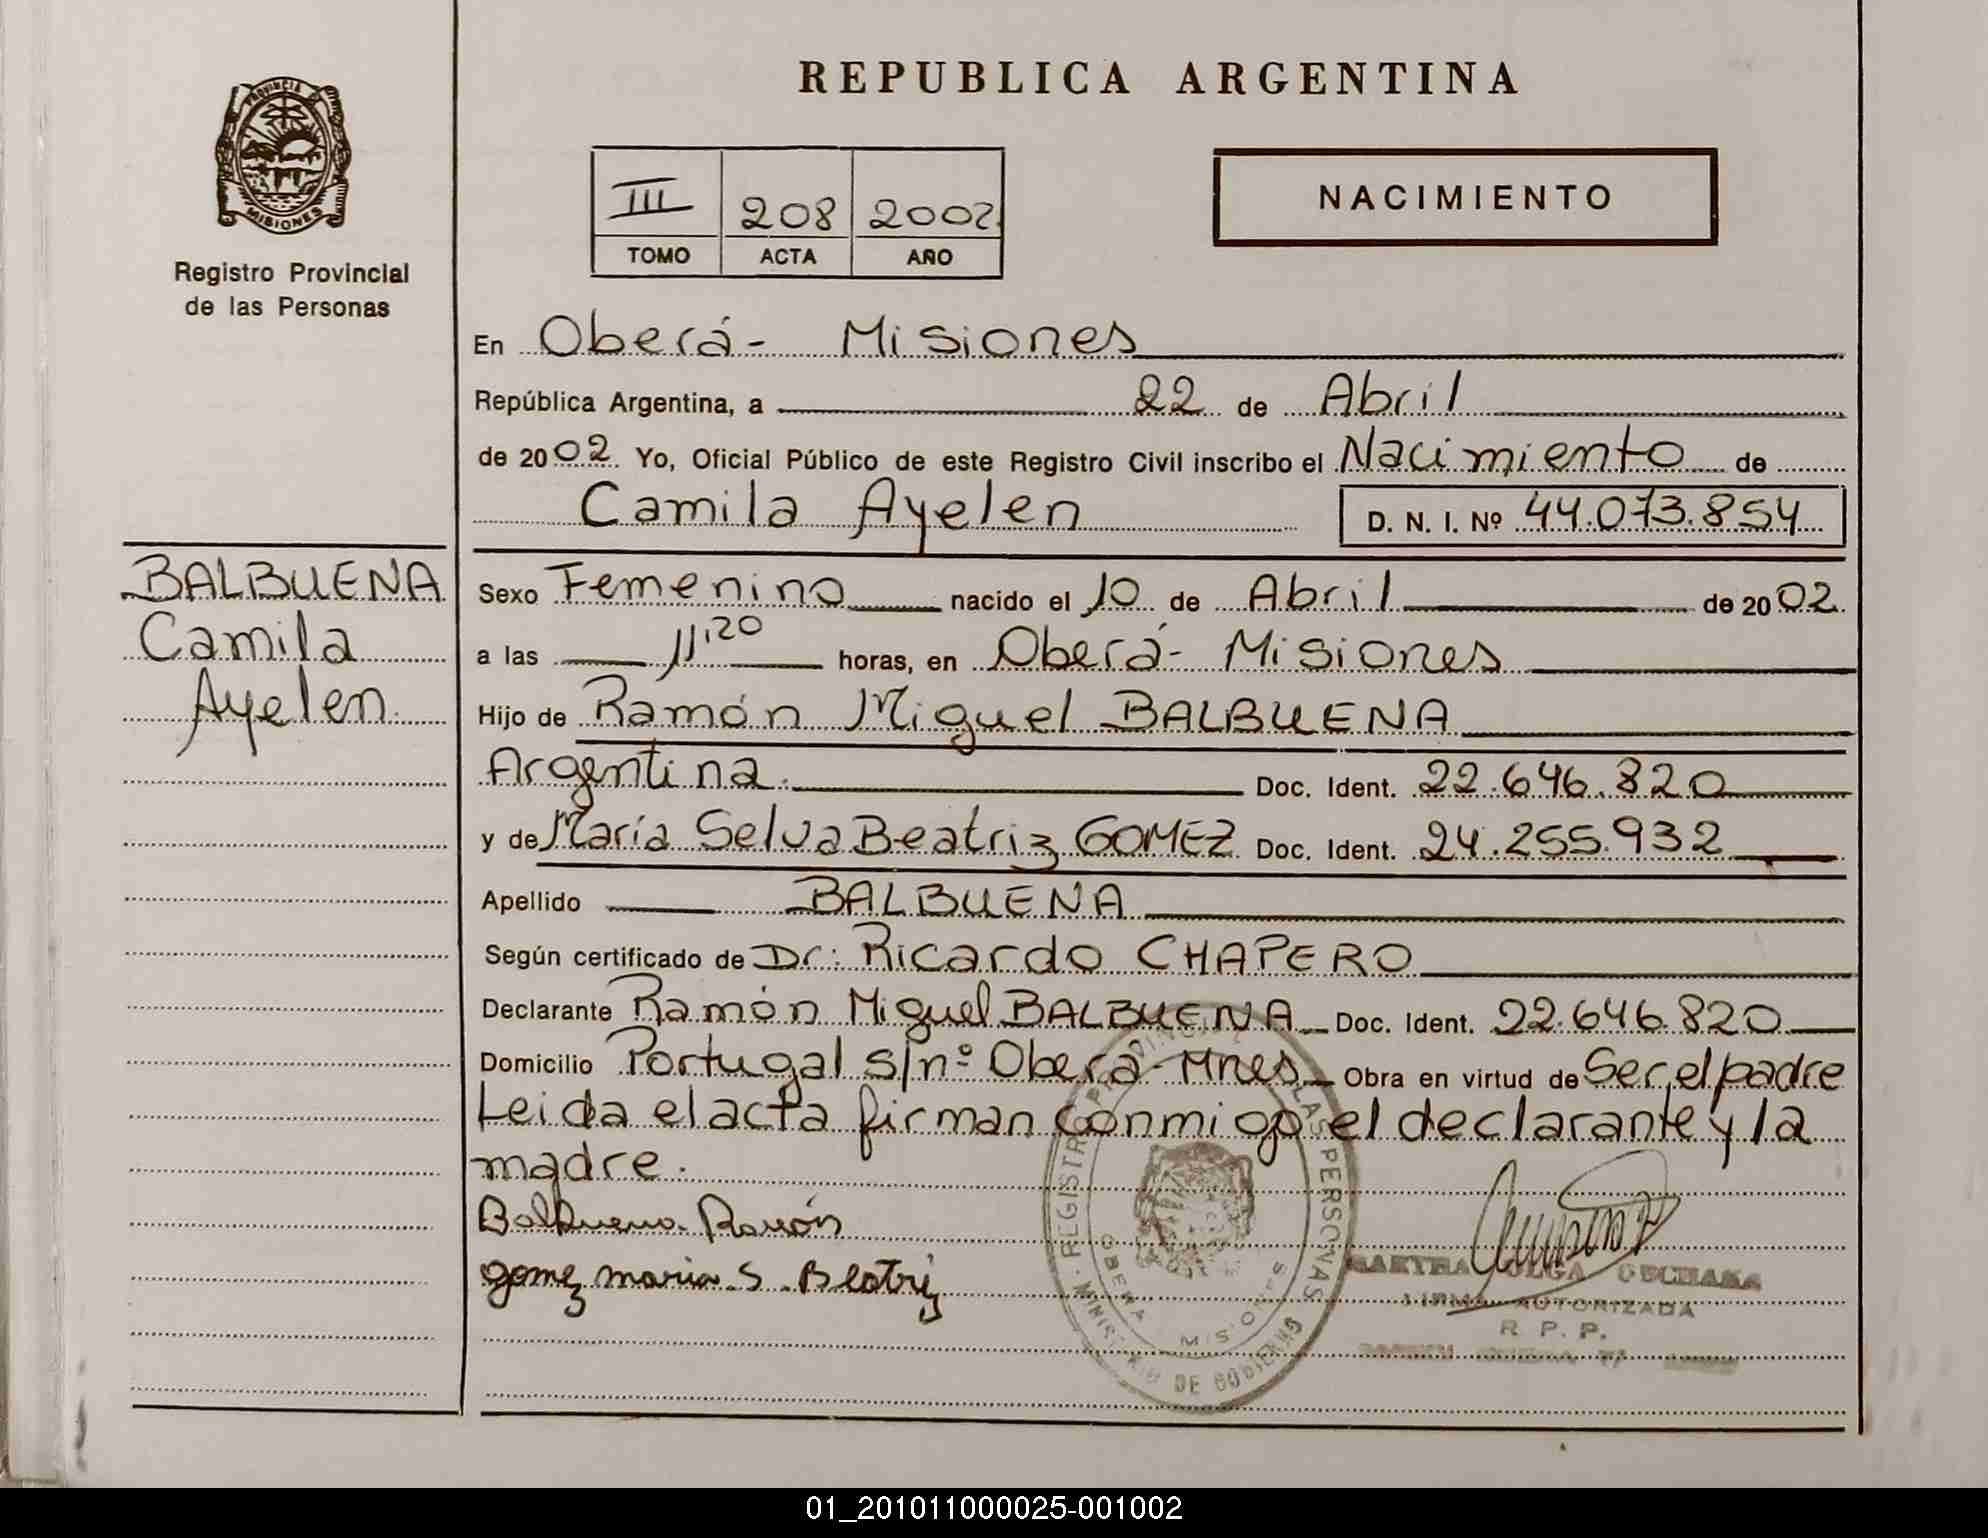 REPUBLICA ARGENTINA
PROVINCIA D
MISIONES
Registro Provincial
de las Personas
III 208 2002
TOMO ACTA AÑO
NACIMIENTO
En Oberá- Misiones
República Argentina, a 22 de Abril
de 2002 Yo, Oficial Público de este Registro Civil inscribo el Nacimiento de
Camila Ayelen D. N. I. Nº 44.073.854
BALBUENA
Camila
Ayelen
Sexo Femenino nacido el 10 de Abril de 2002
a las 11,20 horas, en Oberá- Misiones
Hijo de Ramón Miguel BALBUENA
Argentina. Doc. Ident. 22.646.820
y de María Selva Beatriz GOMEZ Doc. Ident. 24.255.932
Apellido BALBUENA
Según certificado de Dr: Ricardo CHAPERO
Declarante Ramón Miguel BALBUENA Doc. Ident. 22.646.820
Domicilio Portugal s/nº Oberá-Mnes Obra en virtud de Ser el padre
Leida el acta firman conmigo el declarante y la
madre.
Balbuena. Ramón
gomez maria. S. Beatriz
REGISTRO PROVINCIAL LAS PERSONAS
MINISTERIO DE GOBIERNO
OBERA MISIONES
MARTHA OLGA
FIRMA AUTORIZADA
R. P. P.
01_201011000025-001002